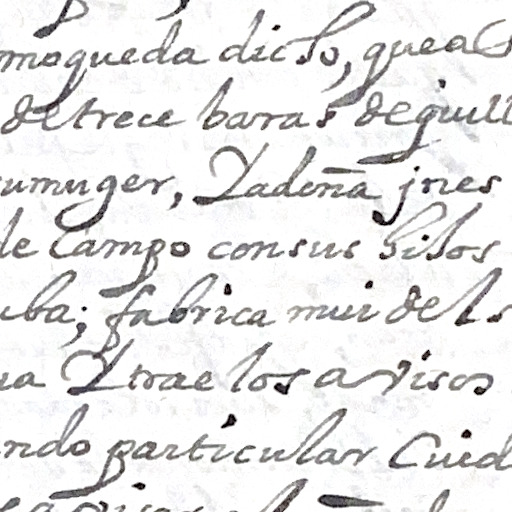 moqueda dicho, quea
de trece baras de quill
sumuger, Yadoña jnes
de Campo consus hilos
uba; fabrica mui del s
ua Ytrae los avisos
ando particular Cuid